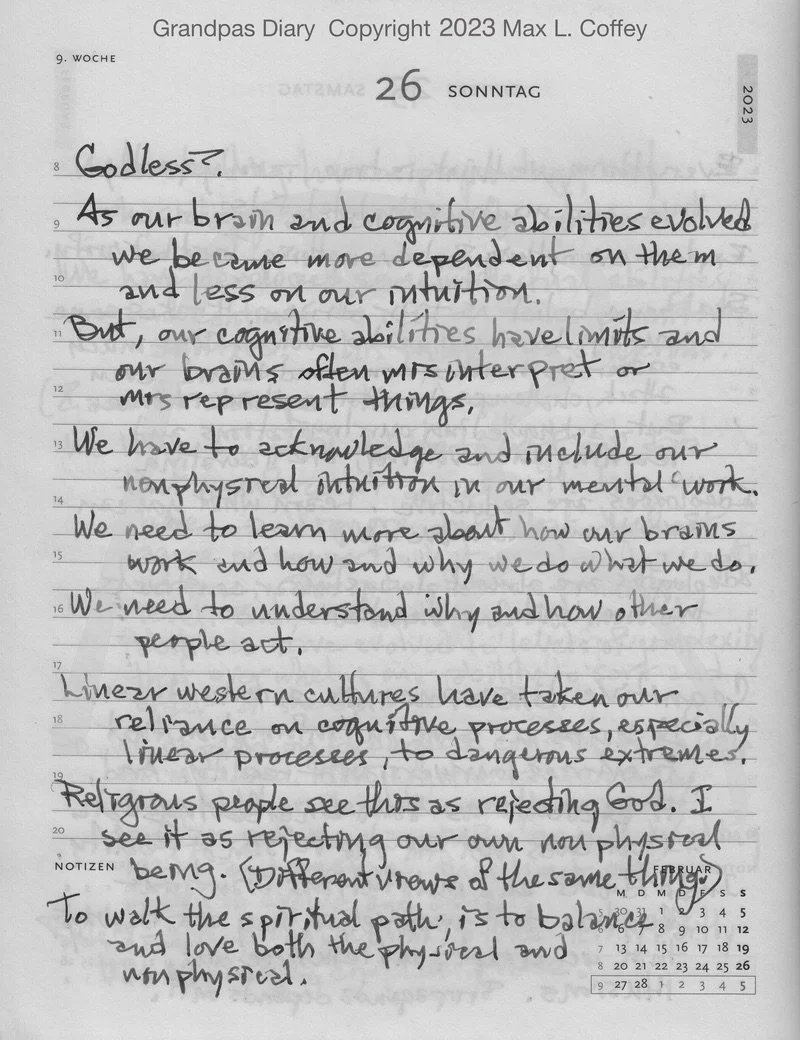 Grandpas Diary  Copyright 2023 Max L. Coffey
9. WOCHE
26 SONNTAG
2023
8 Godless?.
9 As our brain and cognitive abilities evolved
we became more dependent on them
10 and less on our intuition.
11 But, our cognitive abilities have limits and
our brains often misinterpret or
12 misrepresent things.
13 We have to acknowledge and include our
nonphysical intuition in our mental work.
14
We need to learn more about how our brains
15 work and how and why we do what we do.
16 We need to understand why and how other
people act.
17
Linear western cultures have taken our
18 reliance on cognitive processes, especially
linear processes, to dangerous extremes.
19
Religious people see this as rejecting God. I
20 see it as rejecting our own non physical
NOTIZEN being. (Different views of the same thing.)
FEBRUAR
M D M D F S S
To walk the spiritual path, is to balance
5 30 31 1 2 3 4 5
and love both the physical and
6 6 7 8 9 10 11 12
nonphysical.
7 13 14 15 16 17 18 19
8 20 21 22 23 24 25 26
9 27 28 1 2 3 4 5